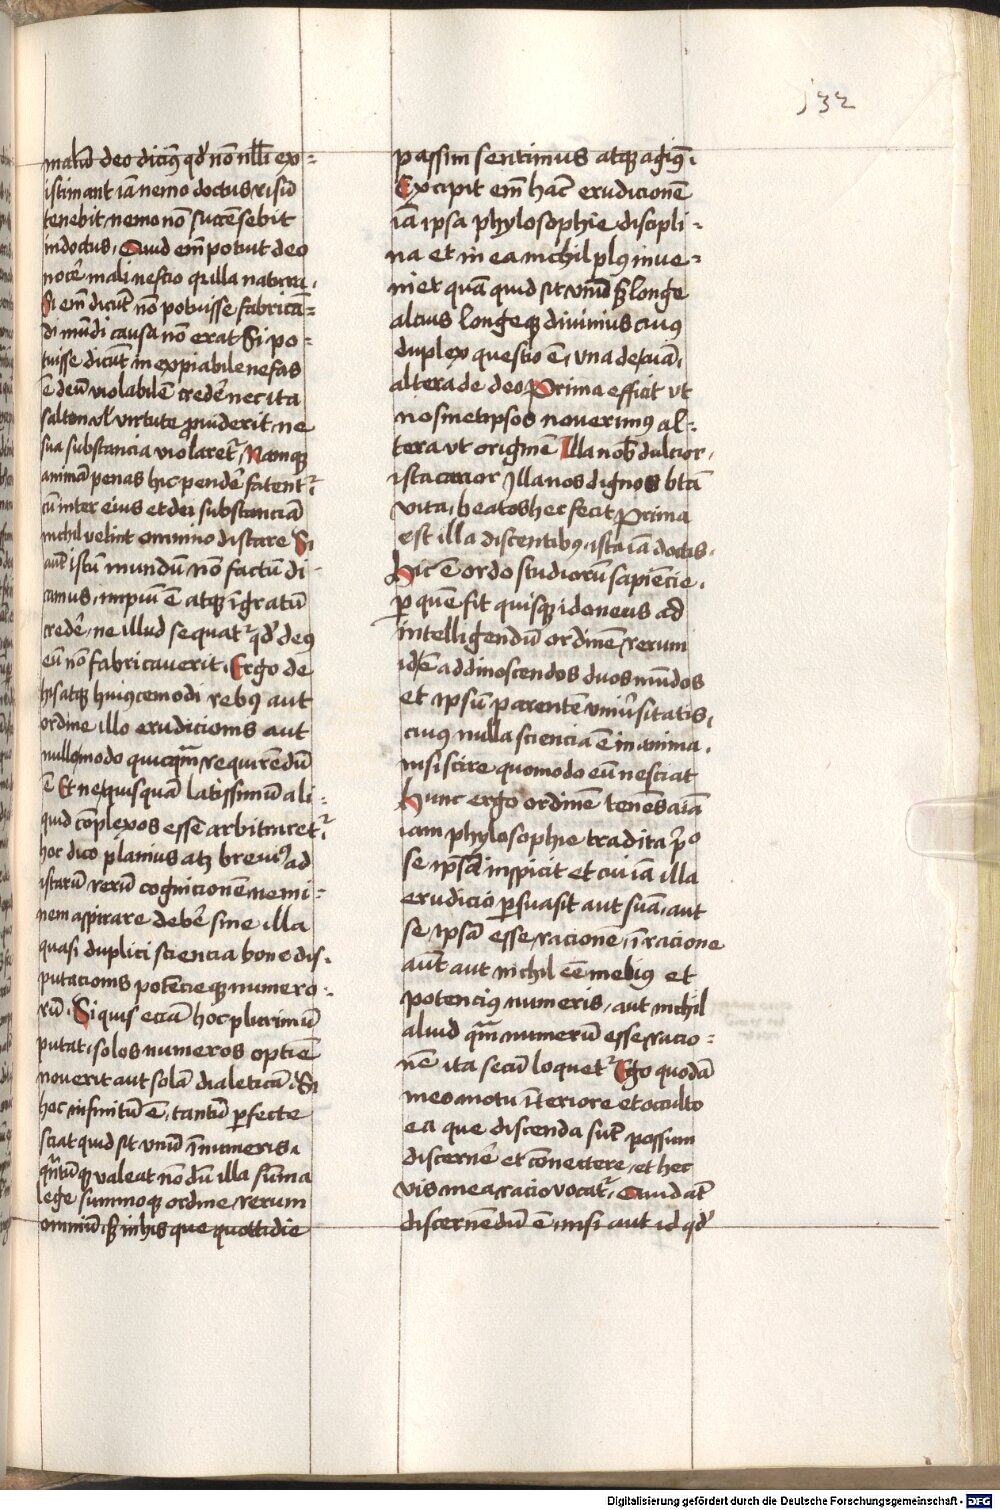 132
malū deo dicim9 qd' nō nłłi ex=
istimant iā nemo doctus risū
tenebit nemo non succēsebit
indoctus. Quid em̄ potuit deo
nocē mali nescio q̄ illa natura.
Si em̄ dicūt nō potuisse fabricā=
di mūdi causa nō erat Si po=
tuisse dicūt inexpiabile nefas
ē deū violabilē credē nec ita
saltem vl' virtute p̄uiderit ne
sua substancia violaret᷑ Namq̨
animā penas hic pendē fatent᷑
cū inter eius et dei substanciā
nichil velint omnino distare Si
aut̄ istū mundū nō factū di
camus, impiū ē atq̨ īgratū
credē, ne illud sequat᷑ qd' deus
eū nō fabricauerit. Ergo de
his atq̨ huiuscemodi reb9 aut
ordine illo erudicionis aut
nullomodo quicq̄m requirendū
ē Et ne quisquā latissimū ali=
quid cōplexos esse arbitraret᷑
hoc dico planius atq̨ breui9 ad
istarū rerū cognicionē nemi=
nem aspirare debē sine illa
quasi duplici sciencia bone dis=
putacionis potencieq̨ numero=
rū. Si quis eciā hoc plurimū
putat, solos numeros optīe
nouerit aut solā dialeticā. Si
hoc infinitū ē, tantū p̄fecte
sciat quid sit vnū ī numeris,
q̄ntūq̨ valeat nōdū illa sūma
lege summoq̨ ordine rerum
omniū, s̄ in his que quottidie
passim sentimus atq̨ agim9.
Excipit em̄ hāc erudicionē
iā ipsa phylosophie discipli=
na et in ea nichil pl9 inue=
niet quā quid sit vnū s̄ longe
alcius longeq̨ diuinius cui9
duplex questio ē, vna de aīa,
altera de deo Prima efficit vt
nosmetipsos nouerim9 al=
tera vt originē Illa nob̄ dulcior,
ista carior Illa nos dignos btā
vita, beatos hec fecit Prima
est illa discentibus, ista iā doctis.
Hic ē ordo studiorū sapiēcie,
p̄ quē fit quisq̨ idoneus ad
intelligendū ordinē rerum
id ē ad dinoscendos duos mūdos
et ipsū parentē vniūsitatis,
cui9 nulla sciencia ē in anima,
nisi scire quomodo eū nesciat
Hunc ergo ordinē tenēs aīa
iam phylosophie tradita p̄o
se ip̄sā inspicit et cui iā illa
erudicio p̄suasit aut suā, aut
se ipsā esse racionē, ī racione
aut̄ aut nichil eē meli9 et
potenci9 numeris, aut nichil
aliud q̄m numerū esse racio=
nē ita secū loquet᷑ Ego quodā
meo motu īteriore et occulto
ea que discenda sūt possum
discernē et cōnectere, et hec
vis mea racio vocat᷑. Quid aūt
discernēdū ē, nisi aut id qd'
Digitalisierung gefördert durch die Deutsche Forschungsgemeinschaft - DFG